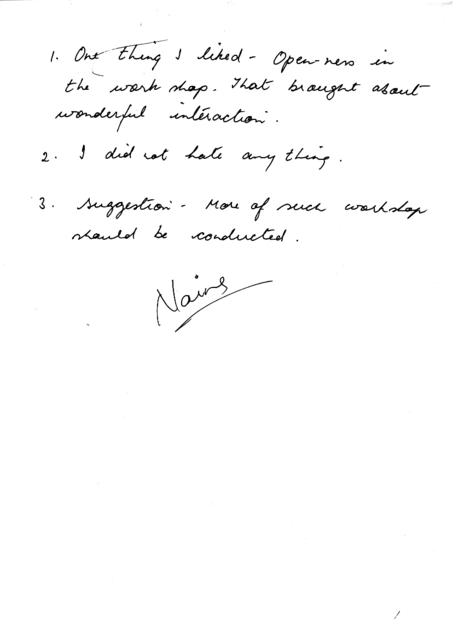 1. One thing I liked - Open-ness in
the work shop. That brought about
wonderful interaction.
2. I did not hate any thing.
3. Suggestion - More of such workshop
should be conducted.